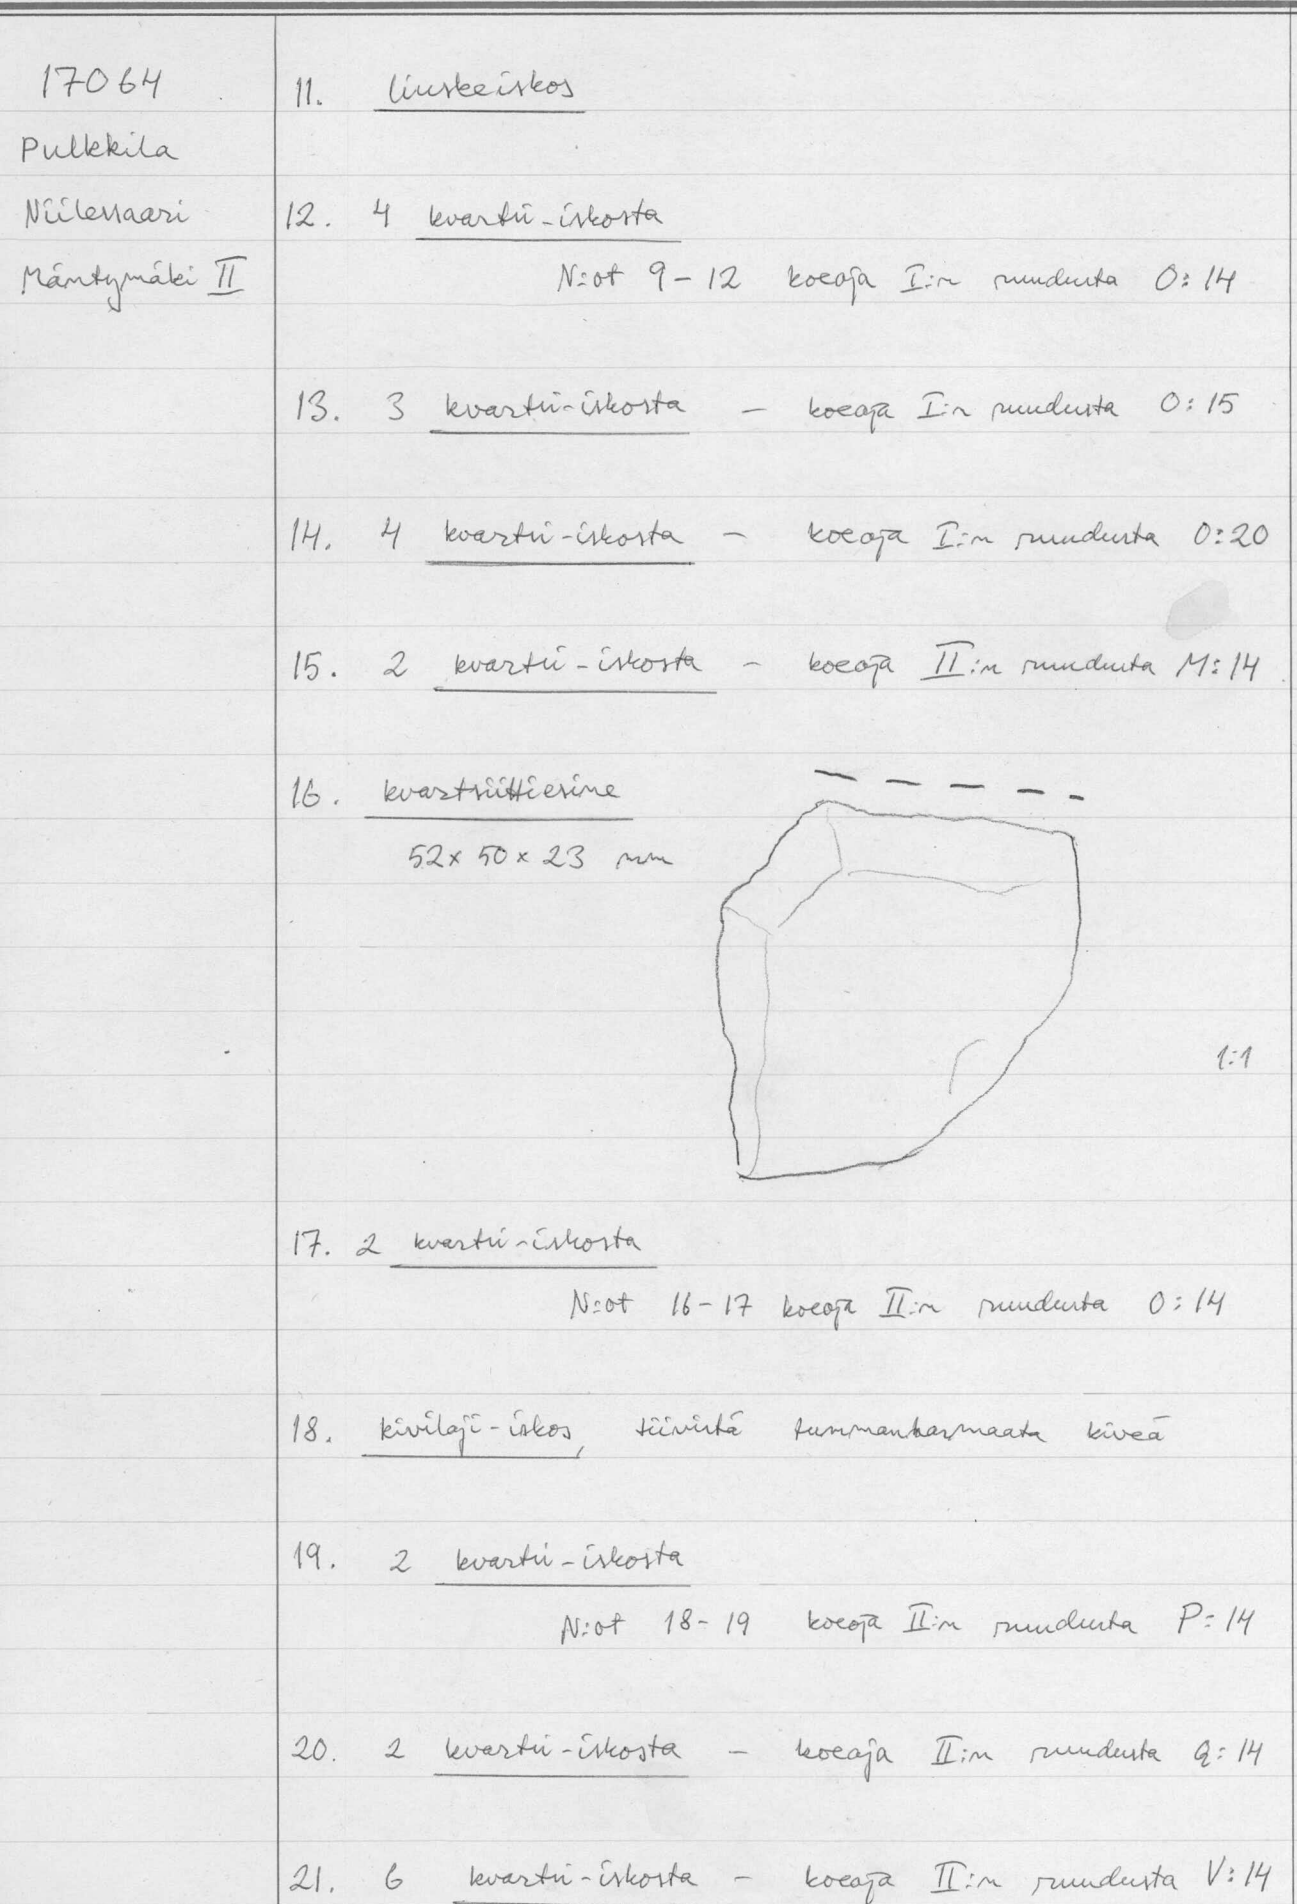 17064
Pulkkila
Niilessaari
Mäntymäki II
11. liuskeiskos
12. 4 kvartsi-iskosta
N:ot 9-12 koeoja I:n ruudusta O:14
13. 3 kvartsi-iskosta - koeoja I:n ruudusta O:15
14. 4 kvartsi-iskosta - koeoja I:n ruudusta O:20
15. 2 kvartsi-iskosta - koeoja II:n ruudusta M:14
16. kvartsiittiesine
52x50x23 mm
1:1
17. 2 kvartsi-iskosta
N:ot 16-17 koeoja II:n ruudusta O:14
18. kivilaji-iskos, tiivistä tummanharmaata kiveä
19. 2 kvartsi-iskosta
N:ot 18-19 koeoja II:n ruudusta P:14
20. 2 kvartsi-iskosta - koeoja II:n ruudusta Q:14
21. 6 kvartsi-iskosta - koeoja II:n ruudusta V:14